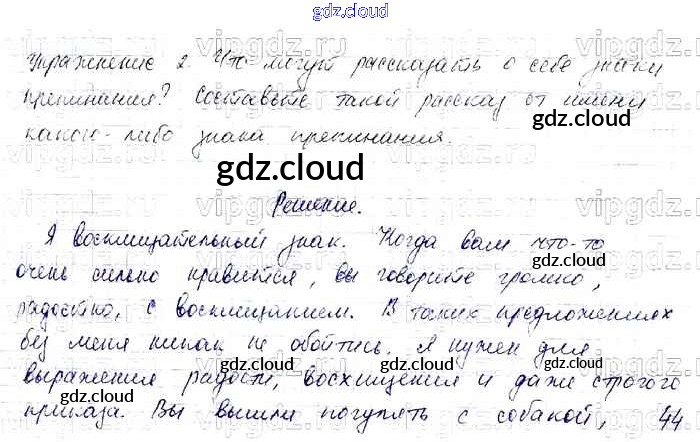 gdz.cloud
Упражнение 2. Что могут рассказать о себе знаки
препинания? Составьте такой рассказ от имени
какого-либо знака препинания.
gdz.cloud
Решение.
Я восклицательный знак. Когда вам что-то
очень сильно нравится, вы говорите громко,
gdz.cloud
радостно, с восклицанием. В таких предложениях
без меня никак не обойтись. Я нужен для
выражения радости, восхищения и даже строгого
gdz.cloud
приказа. Вы вышли погулять с собакой, 44
vipgdz.ru vipgdz.ru vipgdz.ru